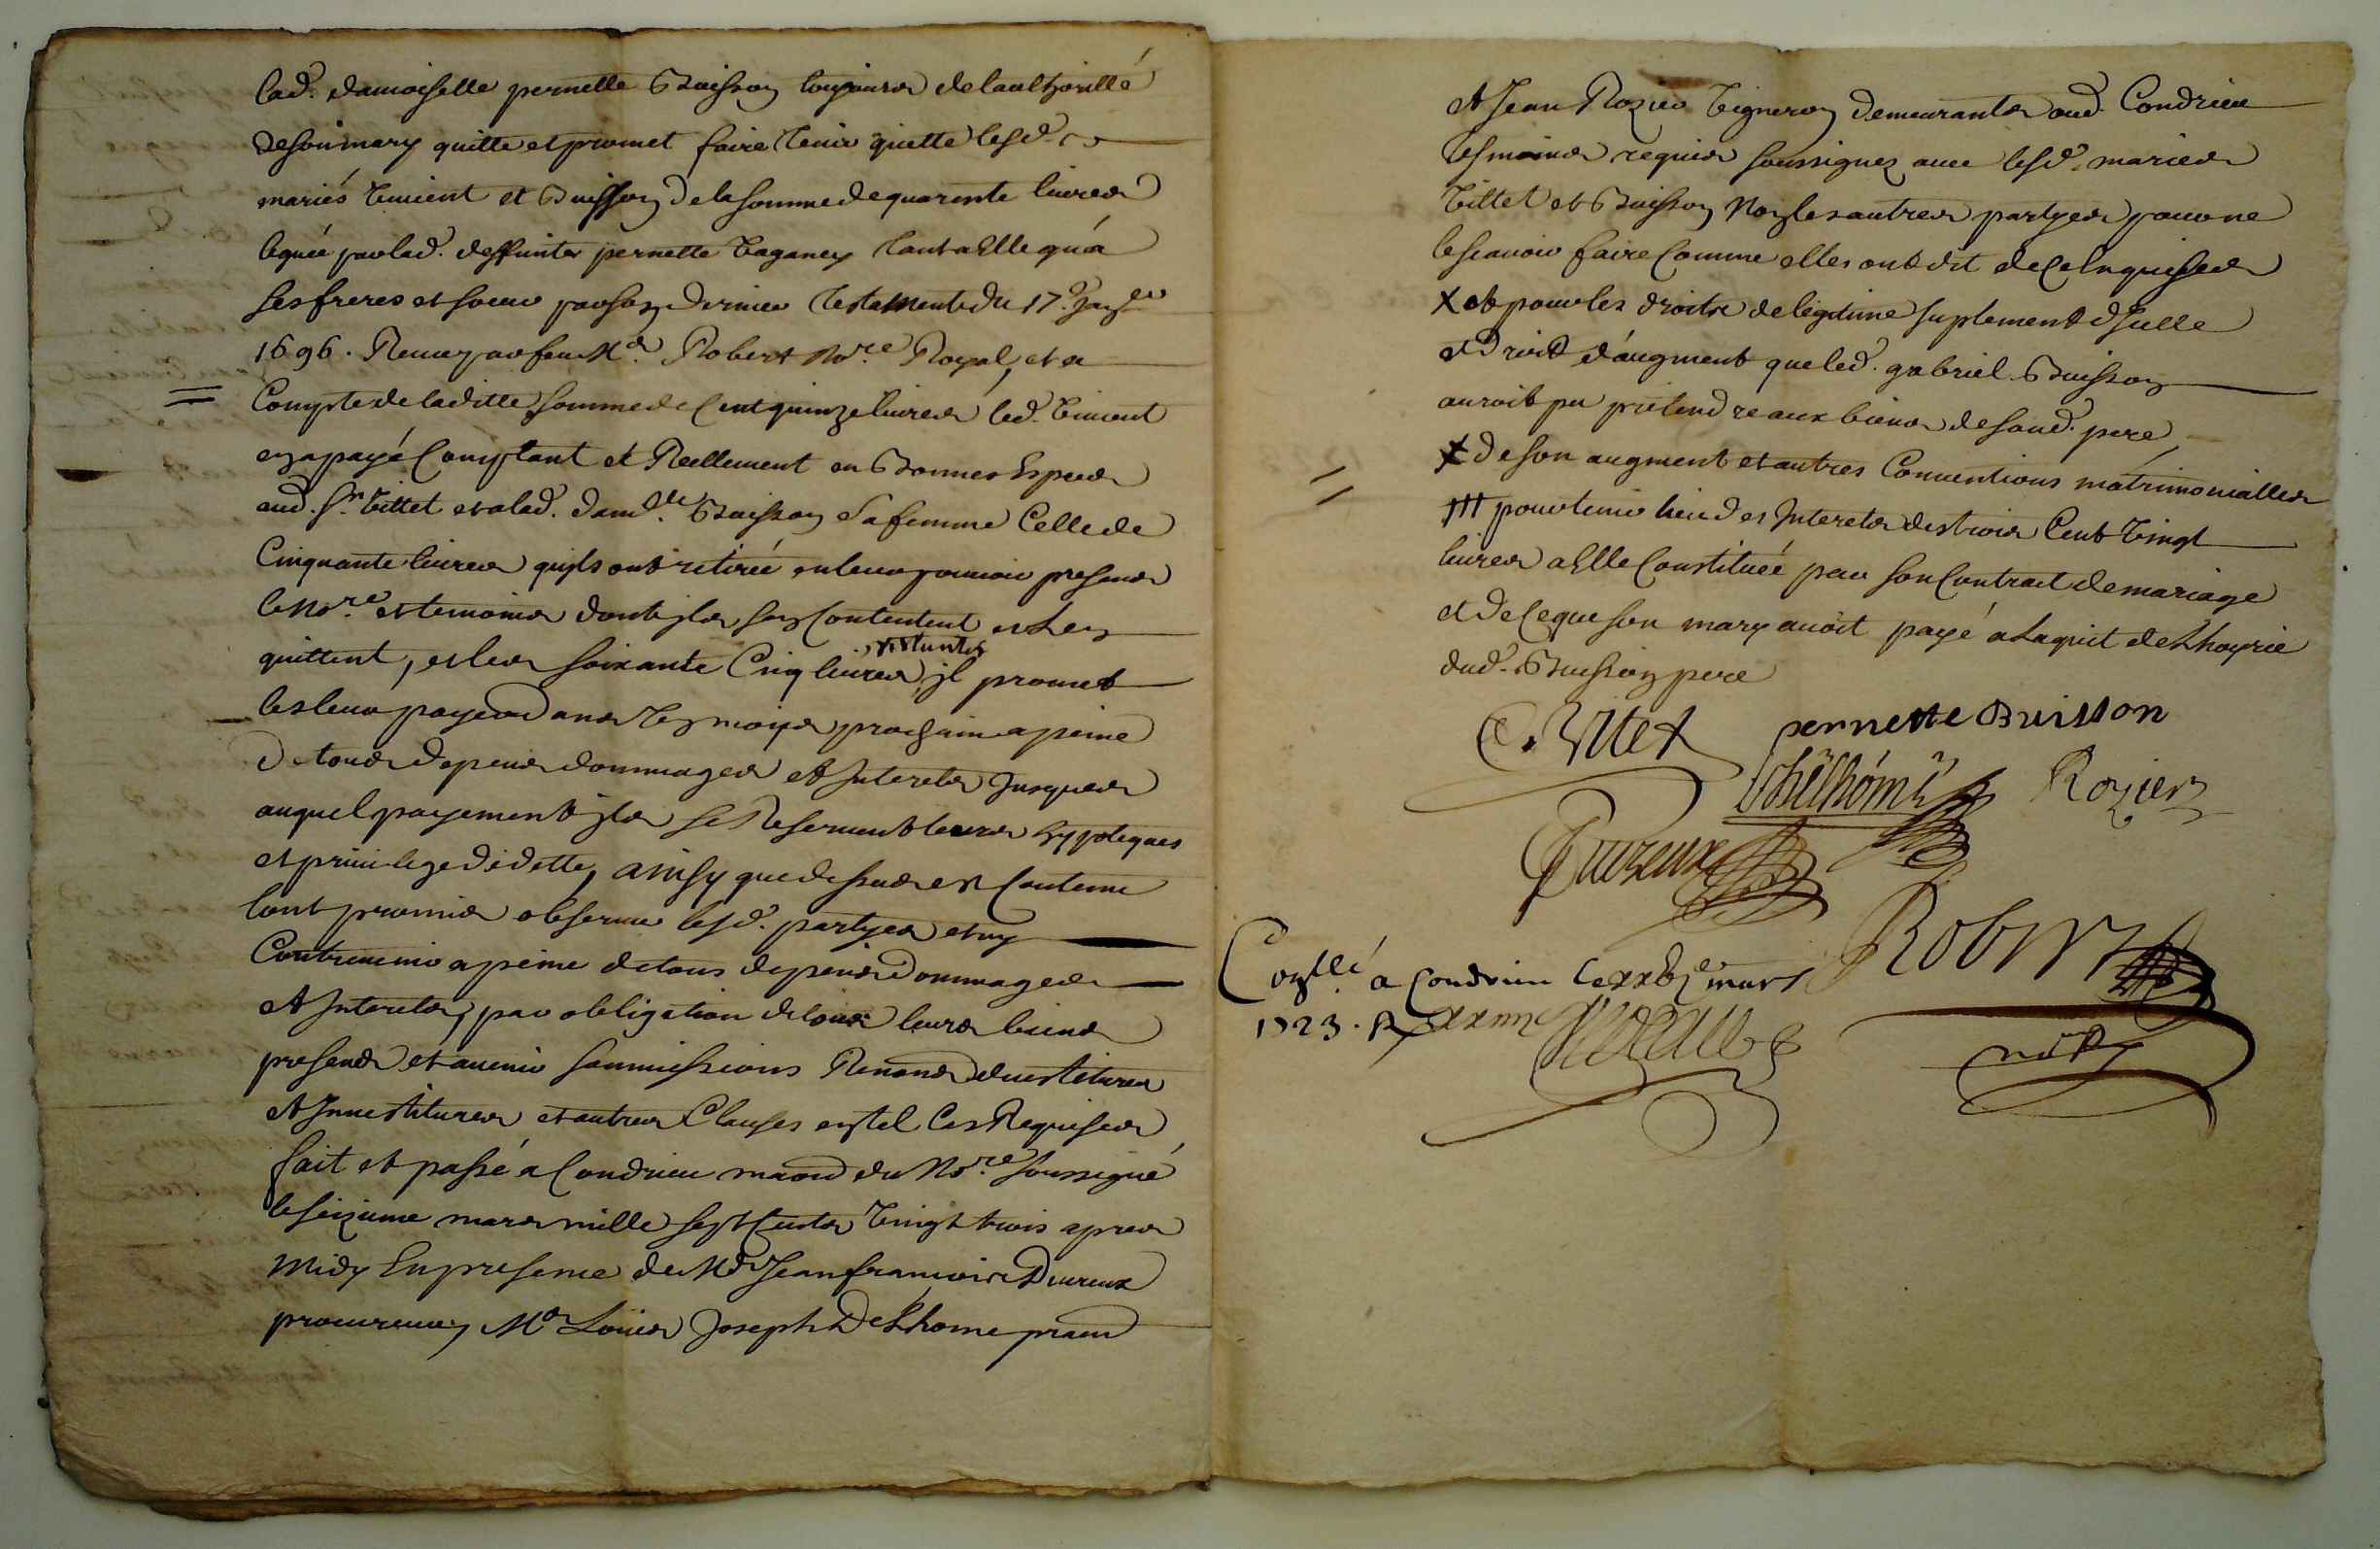 lad. damoiselle pernette Buisson toujours de lauthoritté
de son mary quitte et promet faire tenir quitte lesd.
mariés Vincent et Buisson de la somme de quarente livres
leguée par lad. deffunte pernette Vaganey tant a Elle qu'a
ses freres et soeur par son dernier testament du 17e
1696. Receu par feu Me Robert Nore Royal, et a
Compte de laditte somme de Cent quinze livres led. Vincent
en a payé Comptant et Reellement en Bonnes Especes
aud. Sr Vittet et a lad. damlle Buisson sa femme Celle de
Cinquante livres quils ont retirée en leur pouvoir presens
le Nore et temoins dont ils sen Contentent et Len
quittent, et les soixante Cinq livres restantes il promet
les leur payer dans mois prochain a peine
de tous depens dommages et Interets Jusques
auquel payement ils se Reservent leurs hypoteques
et privilege de dette, ainsy que dessus est Contenu
lont promis observer lesd. partyes et ny
Contrevenir a peine de tous depens Dommages
et Interets, par obligation de tous leurs biens
presens et avenir soumissions Renons devestitures
et Investitures et autres Clauses en tel Cas Requises
fait et passé a Condrieu maon du Nore soussigné
le seizieme mars mille sept Cents Vingt trois apres
midy En presence de Me Jean francois Dureux
procureur, Me Loüis Joseph Delhome pratn
et Jean Rozier Vigneron demeurants aud. Condrieu
tesmoins requis soussignez avec lesd. mariés
Vittet et Buisson Non les autres partyes pour ne
le scavoir faire Comme elles ont dit de Ce Enquises
X et pour les droits de legitime suplement d'Icelle
et droit d'augment que led. gabriel Buisson
auroit pu pretendre aux biens de soud. pere
X de son augment et autres Conventions matrimonialles
III pour tenir lieu des Interets des trois Cent Vingt
livres a Elle Constituée par son Contract de mariage
et de Ce que son mary avoit payé a Laquit de Lhoyrie
dud. Buisson pere
C. Vitet pernette Buisson
Delhome Rozier
Dureux
Robert
Conllé a Condrieu le mars
1723. R
nore